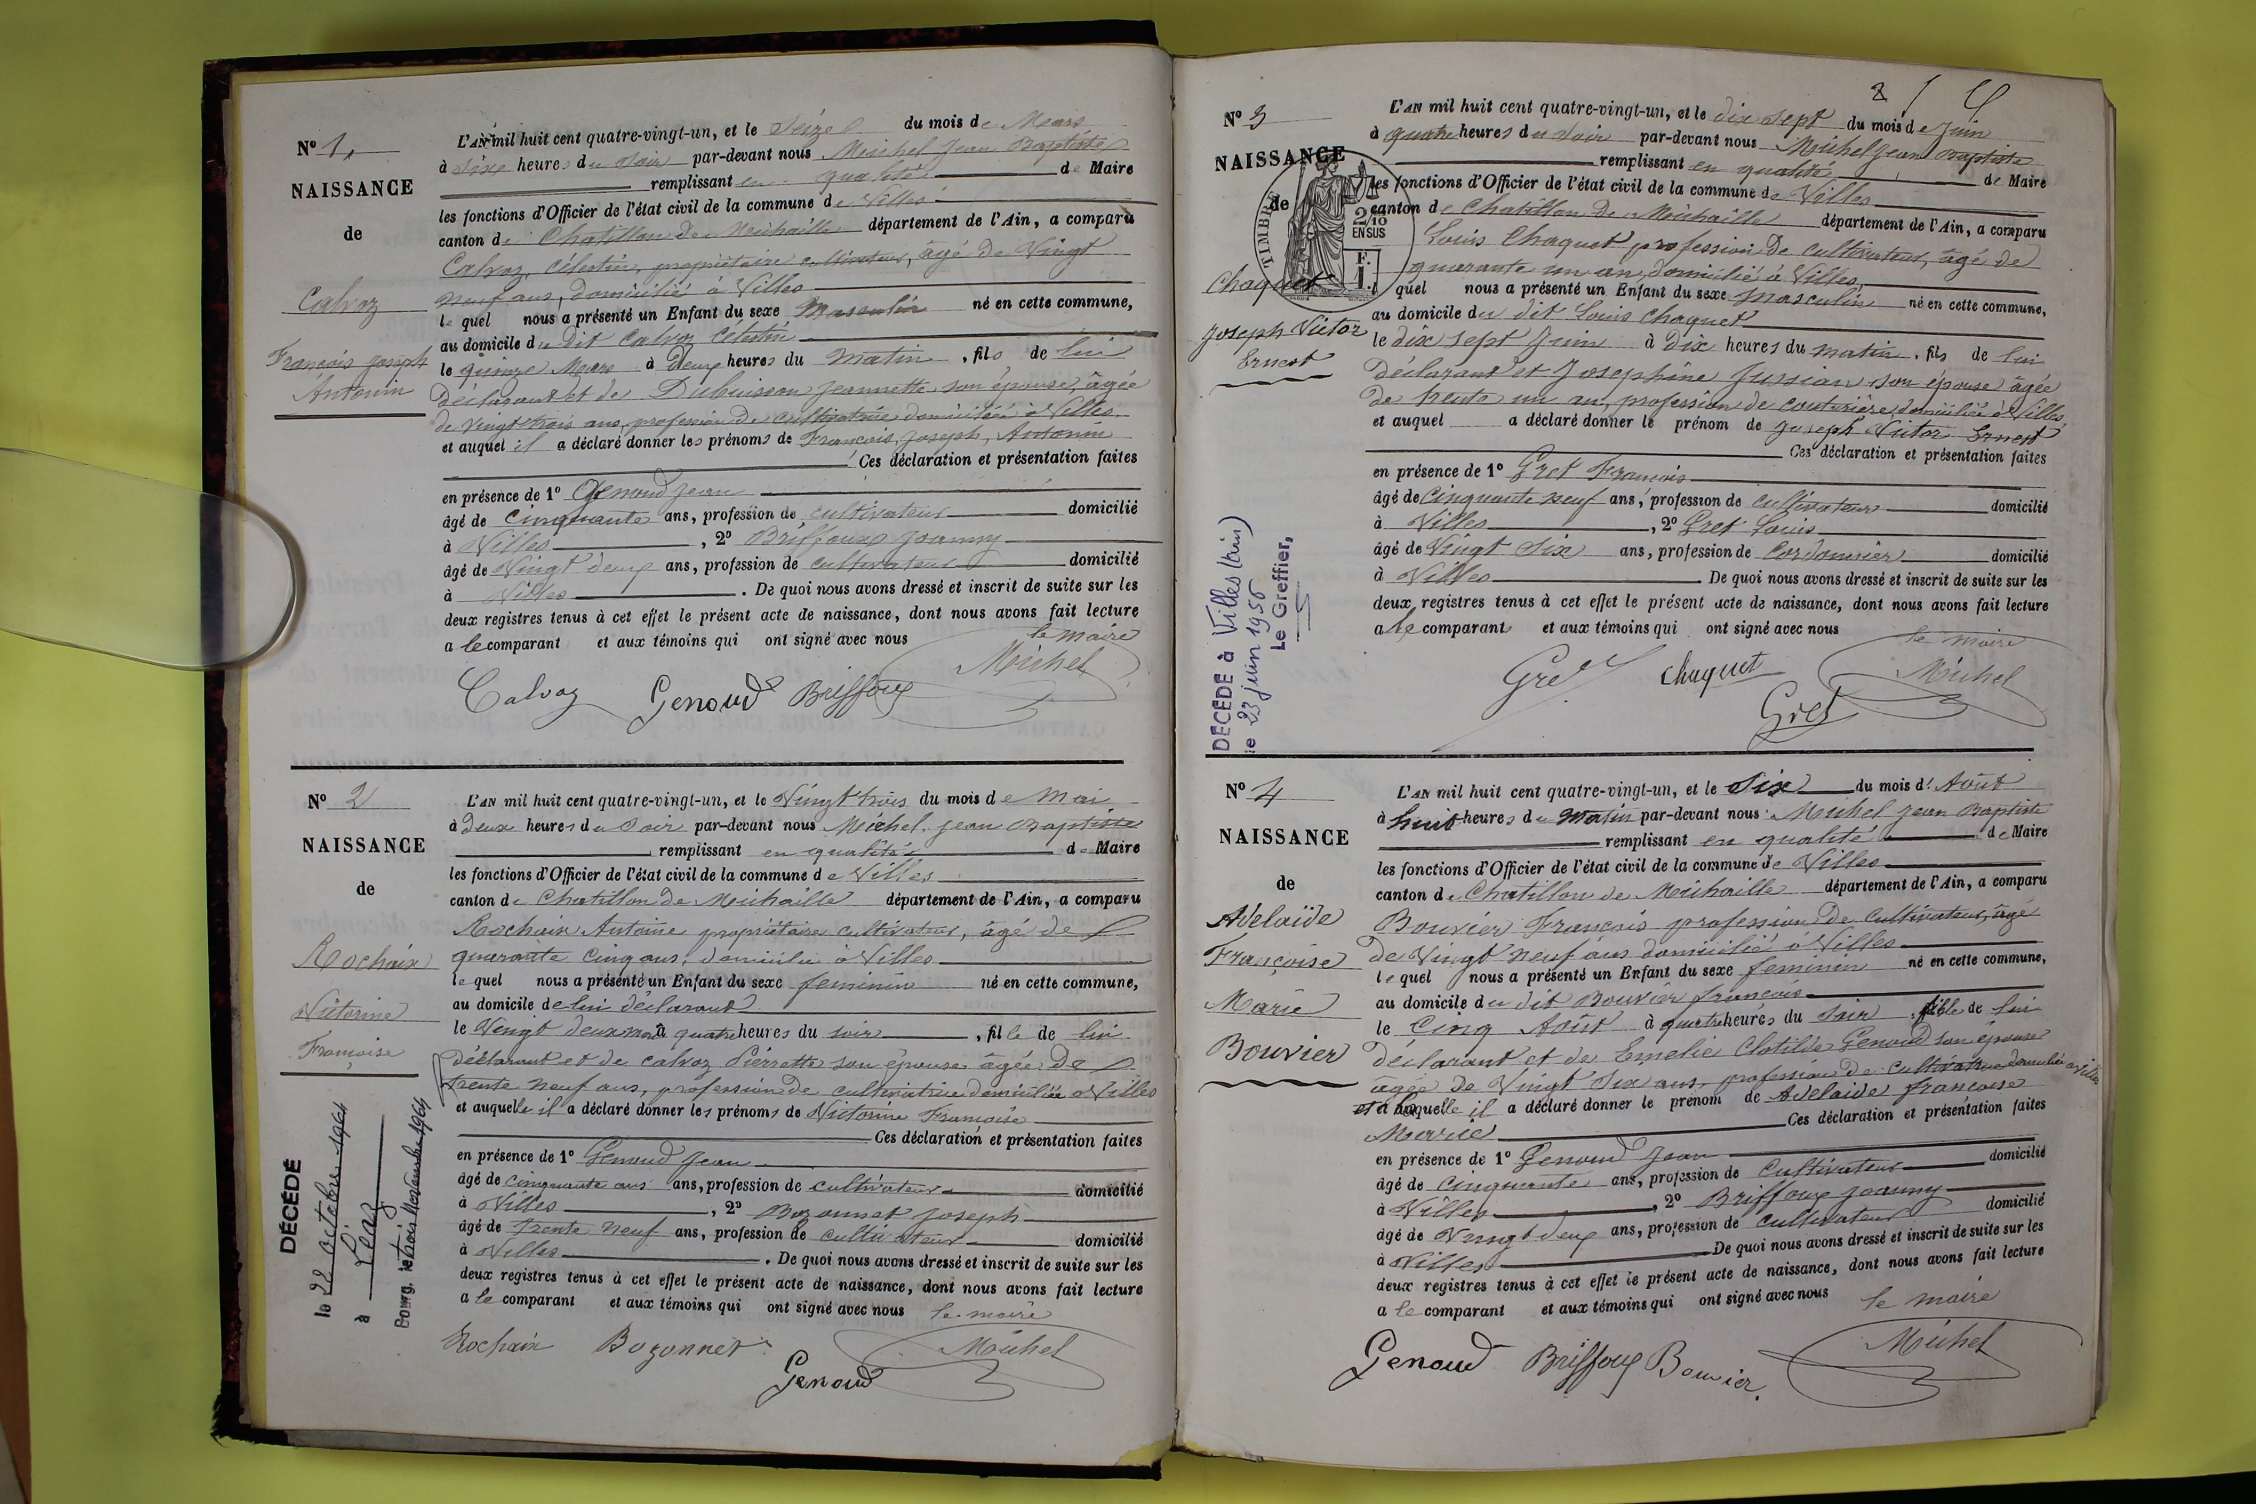 Nº 1.
NAISSANCE
de
Calvoz
François Joseph
Antonin
L'AN mil huit cent quatre-vingt-un, et le Seize du mois de Mars
à Six heures du Soir par-devant nous Michel Jean Baptiste
remplissant en qualité de Maire
les fonctions d'Officier de l'état civil de la commune de Villes
canton de Chatillon de Michaille département de l'Ain, a comparu
Calvoz, Célestin, propriétaire cultivateur, âgé de Vingt
neuf ans, domicilié à Villes
le quel nous a présenté un Enfant du sexe Masculin né en cette commune,
au domicile du dit Calvoz Célestin
le quinze Mars à Deux heures du matin, fils de lui
déclarant et de Dubuisson Jeannette son épouse âgée
de vingt trois ans, profession de cultivatrice domiciliée à Villes
et auquel il a déclaré donner les prénoms de François, Joseph, Antonin
Ces déclaration et présentation faites
en présence de 1º Genoud Jean
âgé de cinquante ans, profession de cultivateur domicilié
à Villes, 2º Briffoux Joanny
âgé de Vingt deux ans, profession de cultivateur domicilié
à Villes. De quoi nous avons dressé et inscrit de suite sur les
deux registres tenus à cet effet le présent acte de naissance, dont nous avons fait lecture
a le comparant et aux témoins qui ont signé avec nous
le maire
Calvoz Genoud Briffoux Michel
Nº 2
NAISSANCE
de
Rochaix
Victorine
Françoise
DÉCÉDÉ
le 22 octobre 1964
à Léaz
Bourg, le trois Novembre 1964
L'AN mil huit cent quatre-vingt-un, et le Vingt trois du mois de Mai
à deux heures du Soir par-devant nous Michel Jean Baptiste
remplissant en qualité de Maire
les fonctions d'Officier de l'état civil de la commune de Villes
canton de Chatillon de Michaille département de l'Ain, a comparu
Rochaix Antoine propriétaire cultivateur, âgé de
quarante cinq ans, domicilié à Villes
le quel nous a présenté un Enfant du sexe feminin né en cette commune,
au domicile de lui déclarant
le Vingt deux mai à quatre heures du soir, fille de lui
déclarant et de calvoz Pierrette son épouse âgée de
trente neuf ans, profession de cultivatrice domiciliée à Villes
et auquelle il a déclaré donner les prénoms de Victorine Françoise
Ces déclaration et présentation faites
en présence de 1º Genoud Jean
âgé de cinquante ans ans, profession de cultivateur domicilié
à Villes, 2º Bozonnet Joseph
âgé de trente neuf ans, profession de cultivateur domicilié
à Villes. De quoi nous avons dressé et inscrit de suite sur les
deux registres tenus à cet effet le présent acte de naissance, dont nous avons fait lecture
a le comparant et aux témoins qui ont signé avec nous le maire
Rochaix Bozonnet Genoud Michel
Nº 3
NAISSANCE
de
TIMBRE
2/10
EN SUS
F.
1.
Chaquet
Joseph Victor
Ernest
DÉCÉDÉ à Villes (Ain)
le 23 juin 1956
Le Greffier,
L'AN mil huit cent quatre-vingt-un, et le dix sept du mois de Juin
à quatre heures du Soir par-devant nous Michel Jean Baptiste
remplissant en qualité de Maire
les fonctions d'Officier de l'état civil de la commune de Villes
canton de Chatillon de Michaille département de l'Ain, a comparu
Louis Chaquet profession de cultivateur, âgé de
quarante un an, domicilié à Villes,
l quel nous a présenté un Enfant du sexe Masculin né en cette commune,
au domicile du dit Louis Chaquet
le dix sept Juin à dix heures du matin, fils de lui
déclarant et Joséphine Jussian son épouse âgée
de trente un an, profession de couturière, domiciliée à Villes
et auquel a déclaré donner le prénom de Joseph Victor Ernest
Ces déclaration et présentation faites
en présence de 1º Gret François
âgé de cinquante neuf ans, profession de cultivateur domicilié
à Villes, 2º Gret Louis
âgé de Vingt Six ans, profession de Cordonnier domicilié
à Villes. De quoi nous avons dressé et inscrit de suite sur les
deux registres tenus à cet effet le présent acte de naissance, dont nous avons fait lecture
a le comparant et aux témoins qui ont signé avec nous
le maire
Gret Chaquet Gret Michel
Nº 4
NAISSANCE
de
Adelaïde
Françoise
Marie
Bouvier
L'AN mil huit cent quatre-vingt-un, et le Six du mois d' Août
à huit heures du Matin par-devant nous Michel Jean Baptiste
remplissant en qualité de Maire
les fonctions d'Officier de l'état civil de la commune de Villes
canton de Chatillon de Michaille département de l'Ain, a comparu
Bouvier François profession de cultivateur, âgé
de Vingt neuf ans domicilié à Villes
le quel nous a présenté un Enfant du sexe feminin né en cette commune,
au domicile du dit Bouvier françois
le Cinq Août à quatre heures du Soir, fille de lui
déclarant et de Emelie Clotilde Genoud son épouse
agée de Vingt Six ans, profession de cultivatrice domiciliée à Villes
et a laquelle il a déclaré donner le prénom de Adelaïde françoise
Marie Ces déclaration et présentation faites
en présence de 1º Genoud Jean domicilié
âgé de Cinquante ans, profession de Cultivateur
à Villes, 2º Briffoux Joanny domicilié
âgé de Vingt deux ans, profession de cultivateur
à Villes De quoi nous avons dressé et inscrit de suite sur les
deux registres tenus à cet effet le présent acte de naissance, dont nous avons fait lecture
a le comparant et aux témoins qui ont signé avec nous le maire
Genoud Briffoux Bouvier. Michel